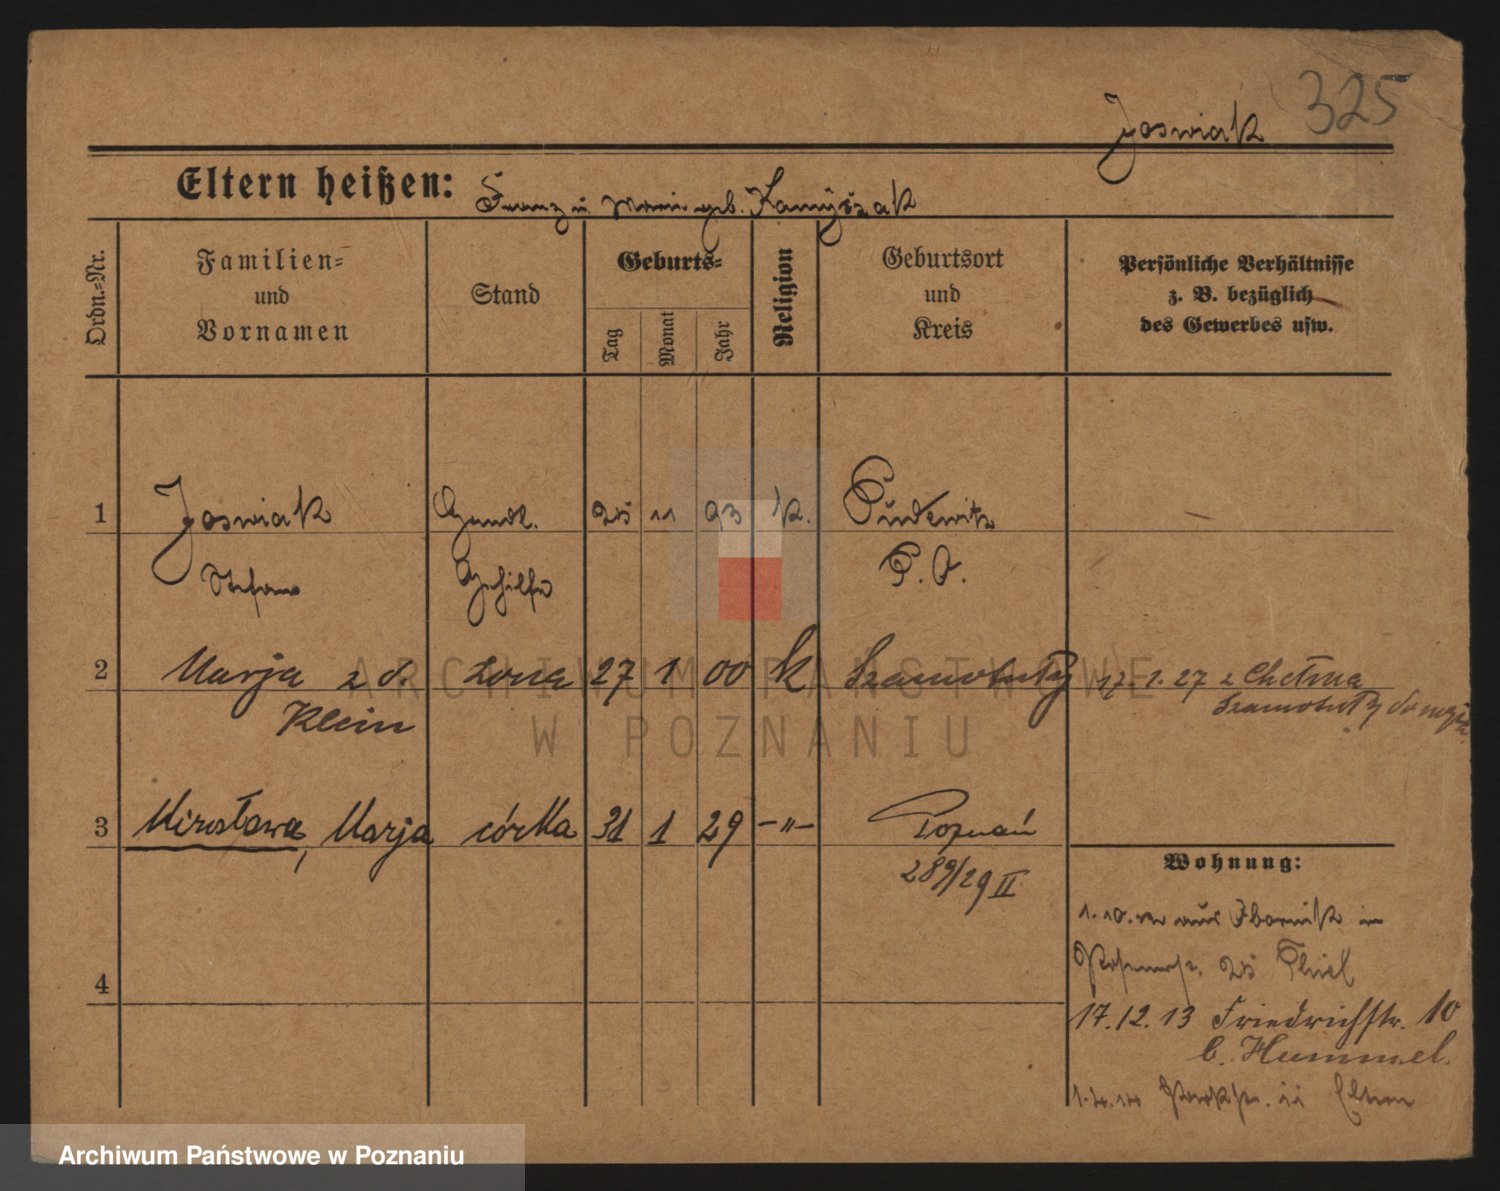 325
Joswiak
Eltern heißen: Franz u. Marie geb. Kamyszak
Ordn.=Nr.
Familien=
und
Vornamen
Stand
Geburts=
Tag
Monat
Jahr
Religion
Geburtsort
und
Kreis
Persönliche Verhältnisse
z. B. bezüglich
des Gewerbes usw.
1 Joswiak Handl. 25 11 93 k. Pudewitz
Stefan Gehilfe P. O.
2 Marja z d. żona 27 1 00 k Szamotuły 17.1.27 z Chełmna
Klein Szamotuły do męża
3 Mirosława, Marja córka 31 1 29 —"— Poznań
289/29 II
4
Wohnung:
1.10. aus Obornik in
25 Thiel
17.12.13 Friedrichstr. 10
b. Hummel.
1.4.14 Parkstr. 11 Eltern
ARCHIWUM PAŃSTWOWE
W POZNANIU
Archiwum Państwowe w Poznaniu